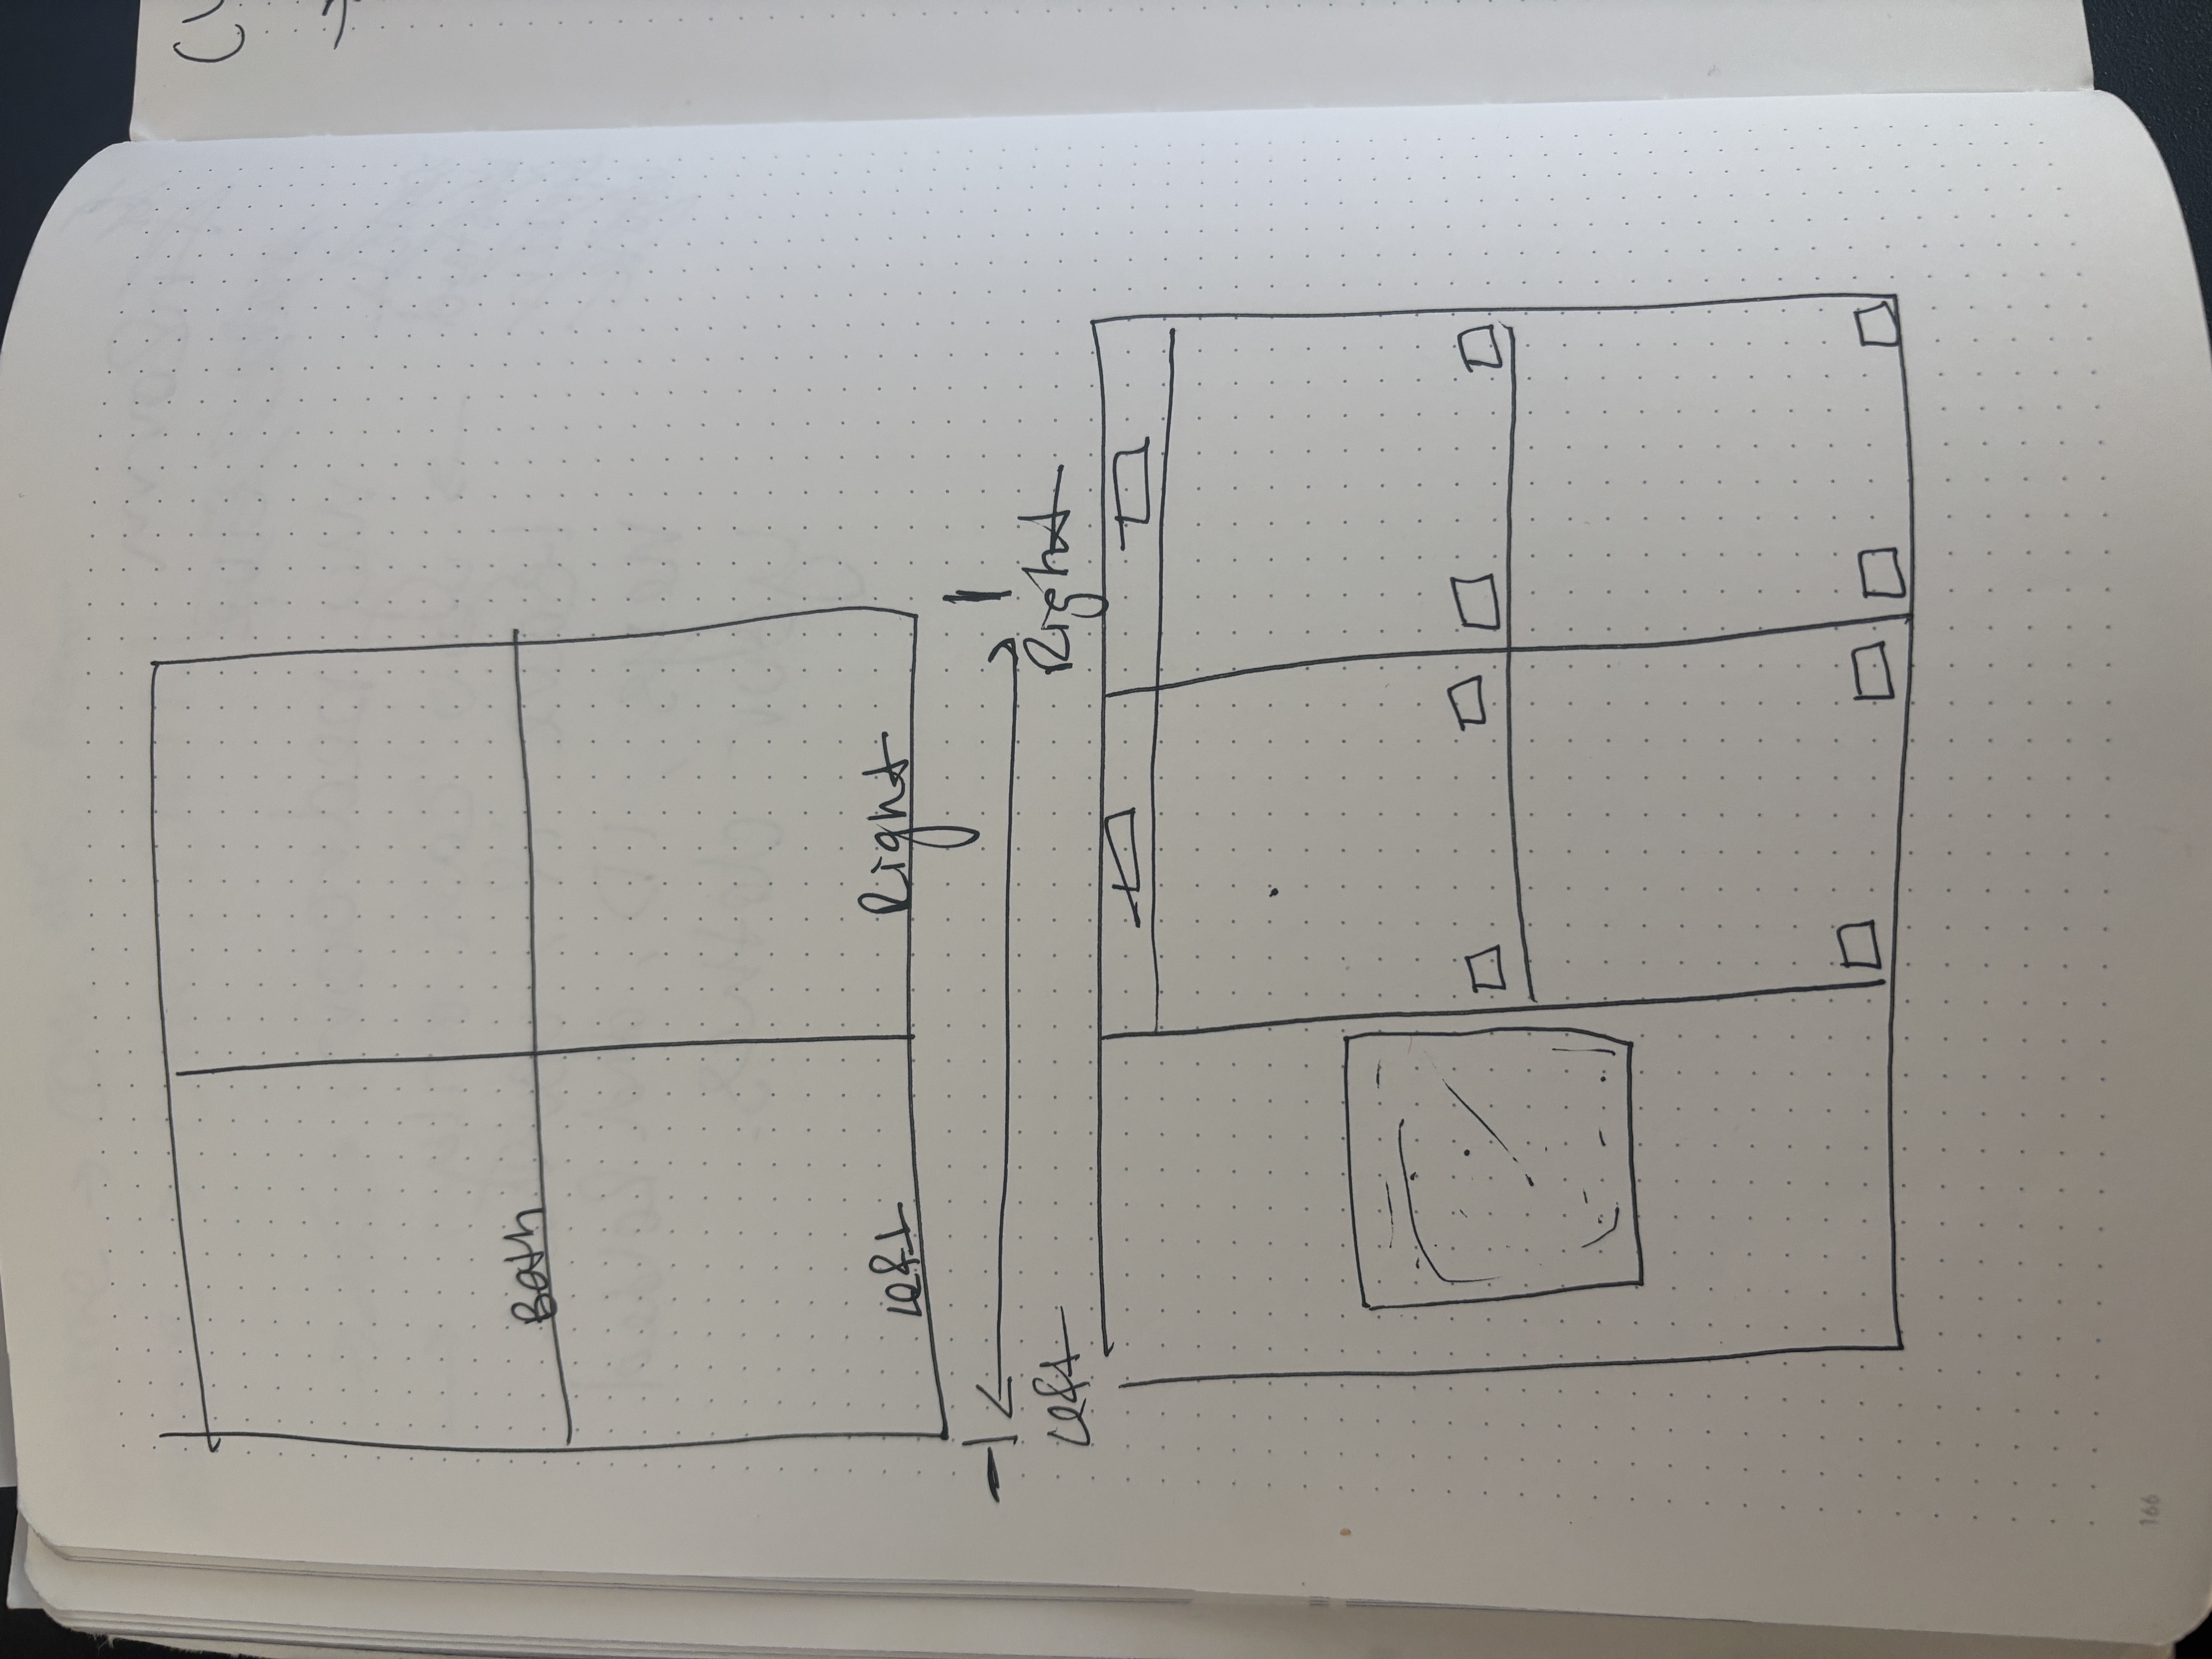 Both
Left
Right
-1
1
Left
Right
166